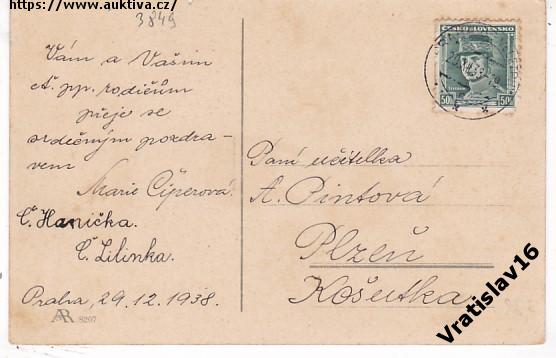 https://www.auktiva.cz/
3849
Vám a Vašim
ct. pp. rodičům
přeje se
srdečným pozdra-
vem
Marie Čiperová.
Č. Hanička.
Č. Lilinka.
Praha, 29.12.1938.
8207
ČESKO-SLOVENSKO
50h 50h
Paní učitelka
A. Pintová
Plzeň
Košutka.
Vratislav16